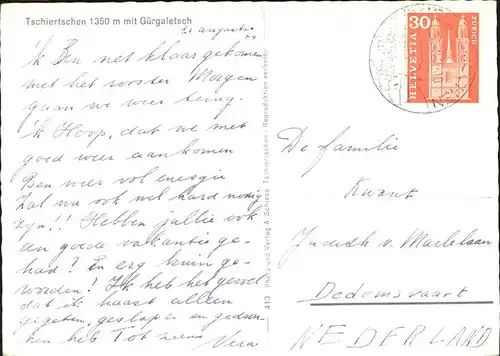 Tschiertschen 1350 m mit Gürgaletsch
21 augustus
Ik Ben net klaar gekomen
met het Morgen
gaan we weer terug.
Ik Hoop, dat we met
goed weer aankomen
Ben weer vol energie
Zal nu ook wel hard nodig
zijn!! Hebben jullie ook
een goede vakantie ge-
had? En erg bruin ge-
worden! Ik heb het gevoel
dat ik haast alleen
gegeten, geslapen en
ken heb Tot ziens
Vera
413 Photo und Verlag A. Schiess Tschiertschen Reproduktion verboten
HELVETIA 30
ZÜRICH
De familie
Kwant
Judith v. Marlelaan
Dedemsvaart
NEDERLAND